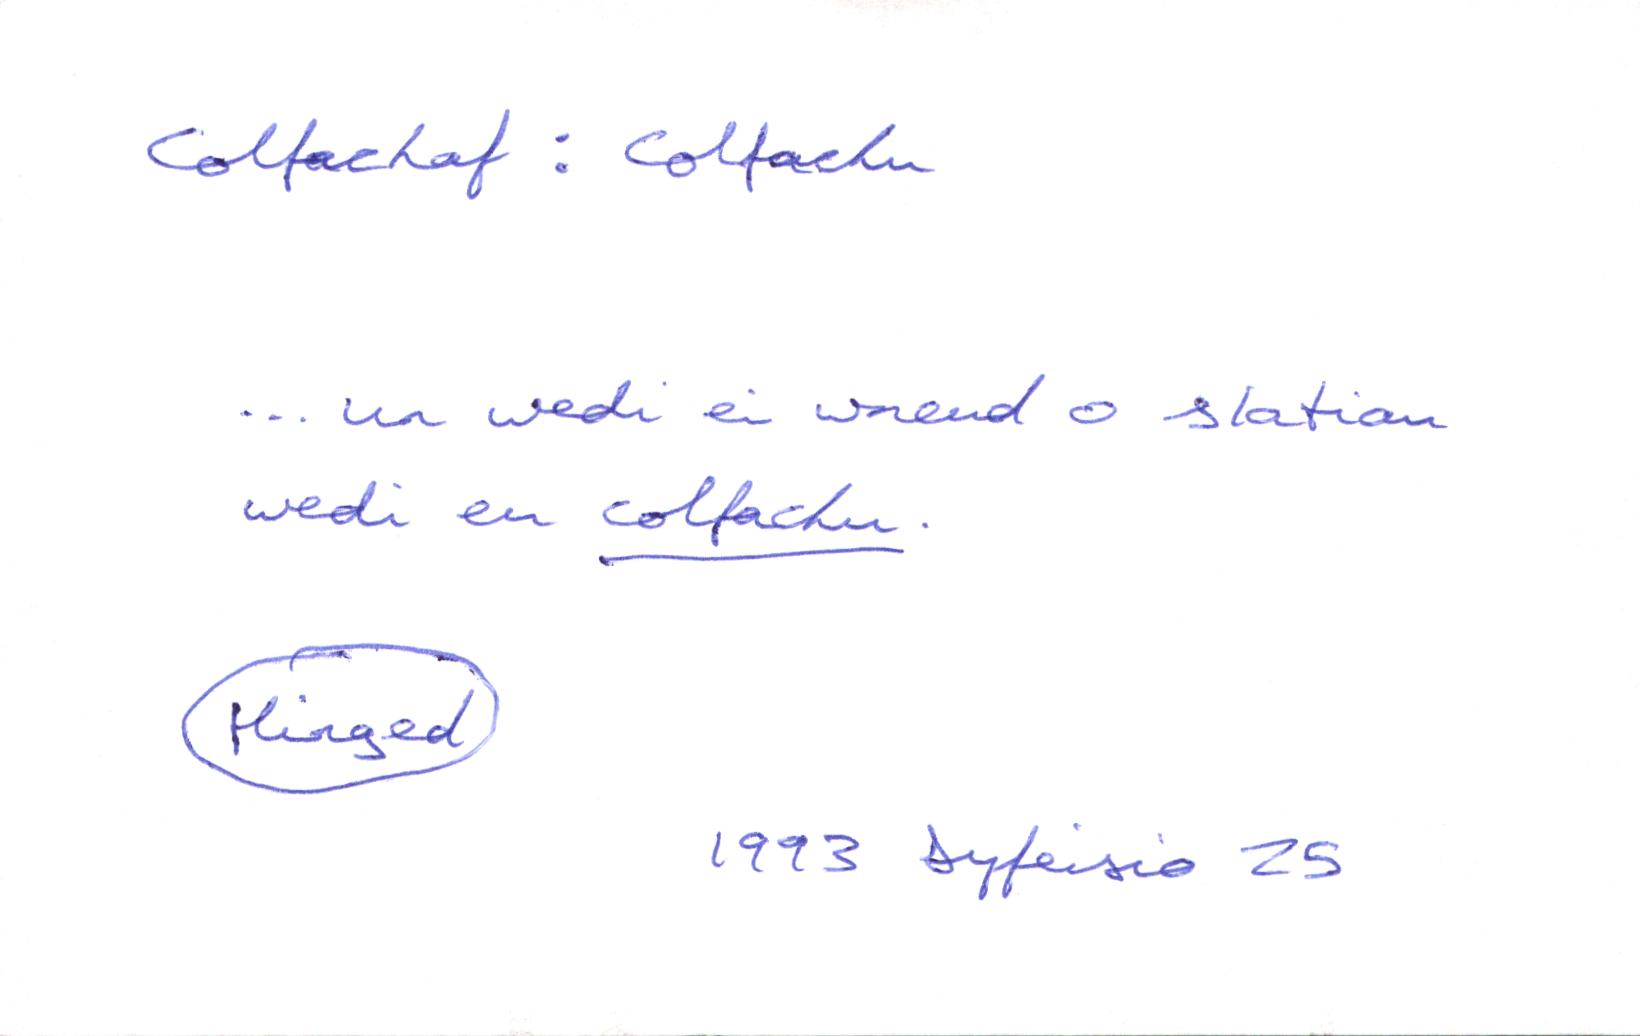 Colfachaf : Colfachu
... un wedi ei wneud o slatiau
wedi eu colfachu.
Hinged
1993 Dyfeisio 25